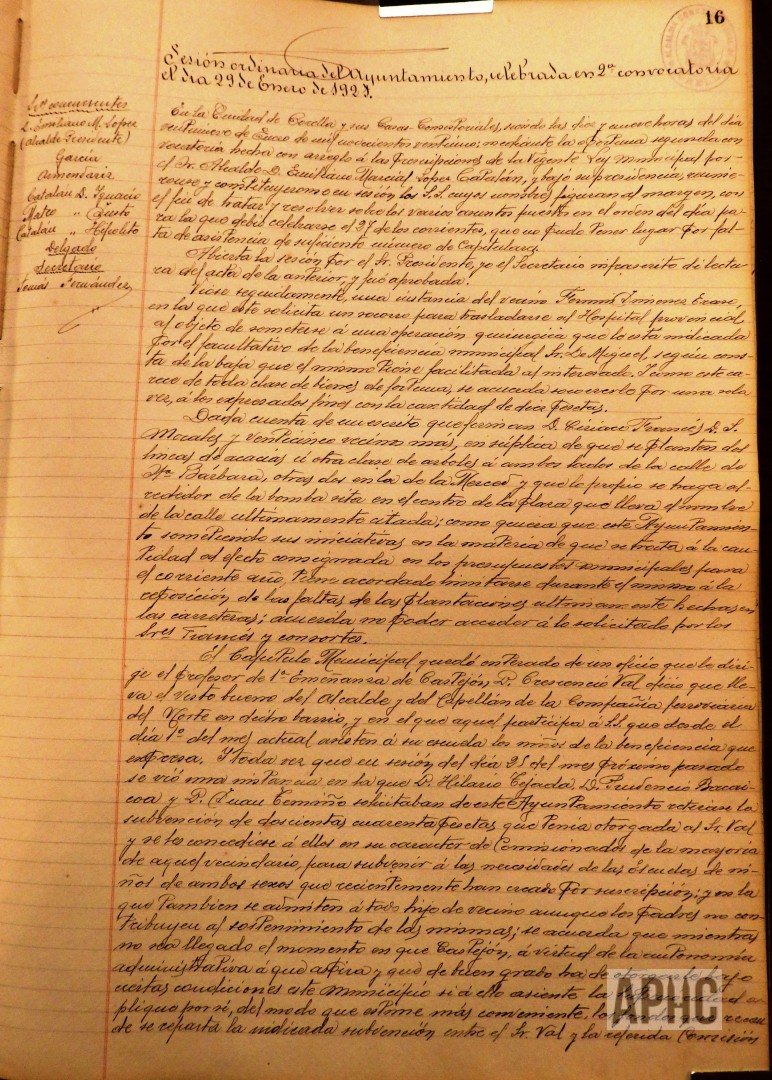 16
Sesión ordinaria del Ayuntamiento, celebrada en 2ª convocatoria
el dia 29 de Enero de 1921.
Sres concurrentes
D. Emiliano M. Lopez
(Alcalde Presidente)
Garcia
Armendariz
Catalán D. Ignacio
Mateo " Justo
Catalán " Hipolito
Delgado
Secretario
Tomás Fernandez
En la Ciudad de Corella y sus Casas-Consistoriales, siendo las diez y nueve horas del dia
veintinueve de Enero de mil novecientos veintiuno; mediante la oportuna segunda con
vocatoria hecha con arreglo á las prescripciones de la vigente Ley Municipal por
el Sr. Alcalde D. Emiliano Marcial Lopez Catalán, y bajo su presidencia, reunie-
ronse y constituyeronse en sesión, los S.S. cuyos nombres figuran al margen, con
el fin de tratar y resolver sobre los varios asuntos puestos en el orden del dia pa-
ra la que debió celebrarse el 27 de los corrientes, que no pudo tener lugar por fal-
ta de asistencia de suficiente número de Capitulares.
Abierta la sesión por el Sr. Presidente, yo el Secretario infrascrito di lectu-
ra del acta de la anterior, y fué aprobada.
Viose seguidamente, una instancia del vecino Fermin Jimenez Eraso,
en la que este solicita un socorro para trasladarse al Hospital provincial,
al objeto de someterse á una operación quirurgica que le está indicada
por el facultativo de la beneficencia municipal Sr. De Miguel, según cons-
ta de la baja que el mismo tiene facilitada al interesado. Y como este ca-
rece de toda clase de bienes de fortuna, se acuerda socorrerle por una sola
vez, á los expresados fines con la cantidad de diez pesetas.
Dada cuenta de un escrito que firman D. Ciriaco Francés, D. S.
Morales y veinticinco vecinos más, en súplica de que se planten dos
lineas de acacias ú otra clase de arboles á ambos lados de la calle de
Sta Bárbara, otras dos en la de la Merced y que lo propio se haga al
rededor de la bomba sita en el centro de la plaza que lleva el nombre
de la calle ultimamente citada; como quiera que este Ayuntamien-
to sometiendo sus iniciativas en la materia de que se trata á la can-
tidad al efecto consignada en los presupuestos municipales para
el corriente año, tiene acordado limitarse durante el mismo á la
reposición de las faltas de las plantaciones ultimamente hechas en
las carreteras; acuerda no poder acceder á lo solicitado por los
Sres Francés y consortes.
El Capitulo Municipal quedó enterado de un oficio que le diri-
ge el profesor de 1ª Enseñanza de Castejón, D. Crescencio Val oficio que lle-
va el visto bueno del Alcalde y del Capellán de la Compañia ferroviaria
del Norte en dicho barrio, y en el que aquel participa á S.S. que desde el
día 1º del mes actual asisten á su escuela los niños de la beneficencia que
expresa. Y toda vez que en sesión del dia 25 del mes próximo pasado
se vió una instancia en la que D. Hilario Tejada, D. Prudencio Barai-
coa y D. Juan Temiño solicitaban de este Ayuntamiento retirase la
subvención de doscientas cuarenta pesetas que tenia otorgada al Sr. Val
y se les concediese á ellos en su caracter de Comisionados de la mayoria
de aquel vecindario, para subvenir á las necesidades de las Escuelas de ni-
ños de ambos sexos que recientemente han creado por suscripción; y en la
que tambien se admiten á todo hijo de vecino aunque los padres no con-
tribuyen al sostenimiento de las mismas; se acuerda que mientras
no sea llegado el momento en que Castejón, á virtud de la autonomía
administrativa á que aspira y que de buen grado ha de bajo
ciertas condiciones este municipio si á ello asiente la
plique por sí, del modo que estime más conveniente,
de se reparta la indicada subvención entre el Sr. Val y la referida Comisión
APHC